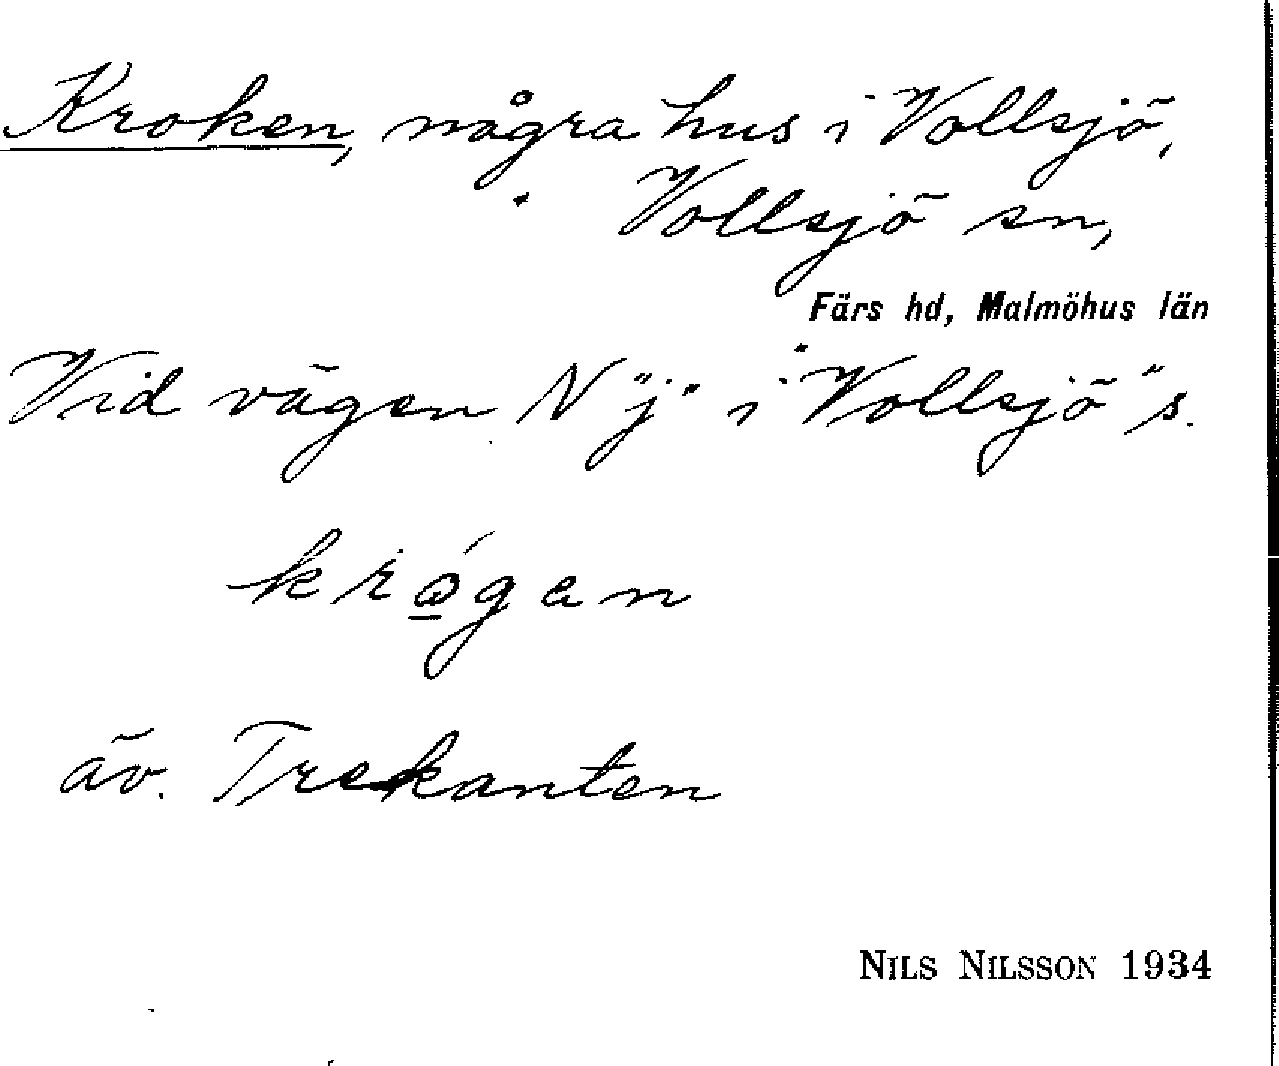 Kroken, några hus i Vollsjö,
Vollsjö sn,
Färs hd, Malmöhus län
Vid vägen N "j" i "Vollsjö" s.
krǿ̱gan
äv. Trekanten
NILS NILSSON 1934